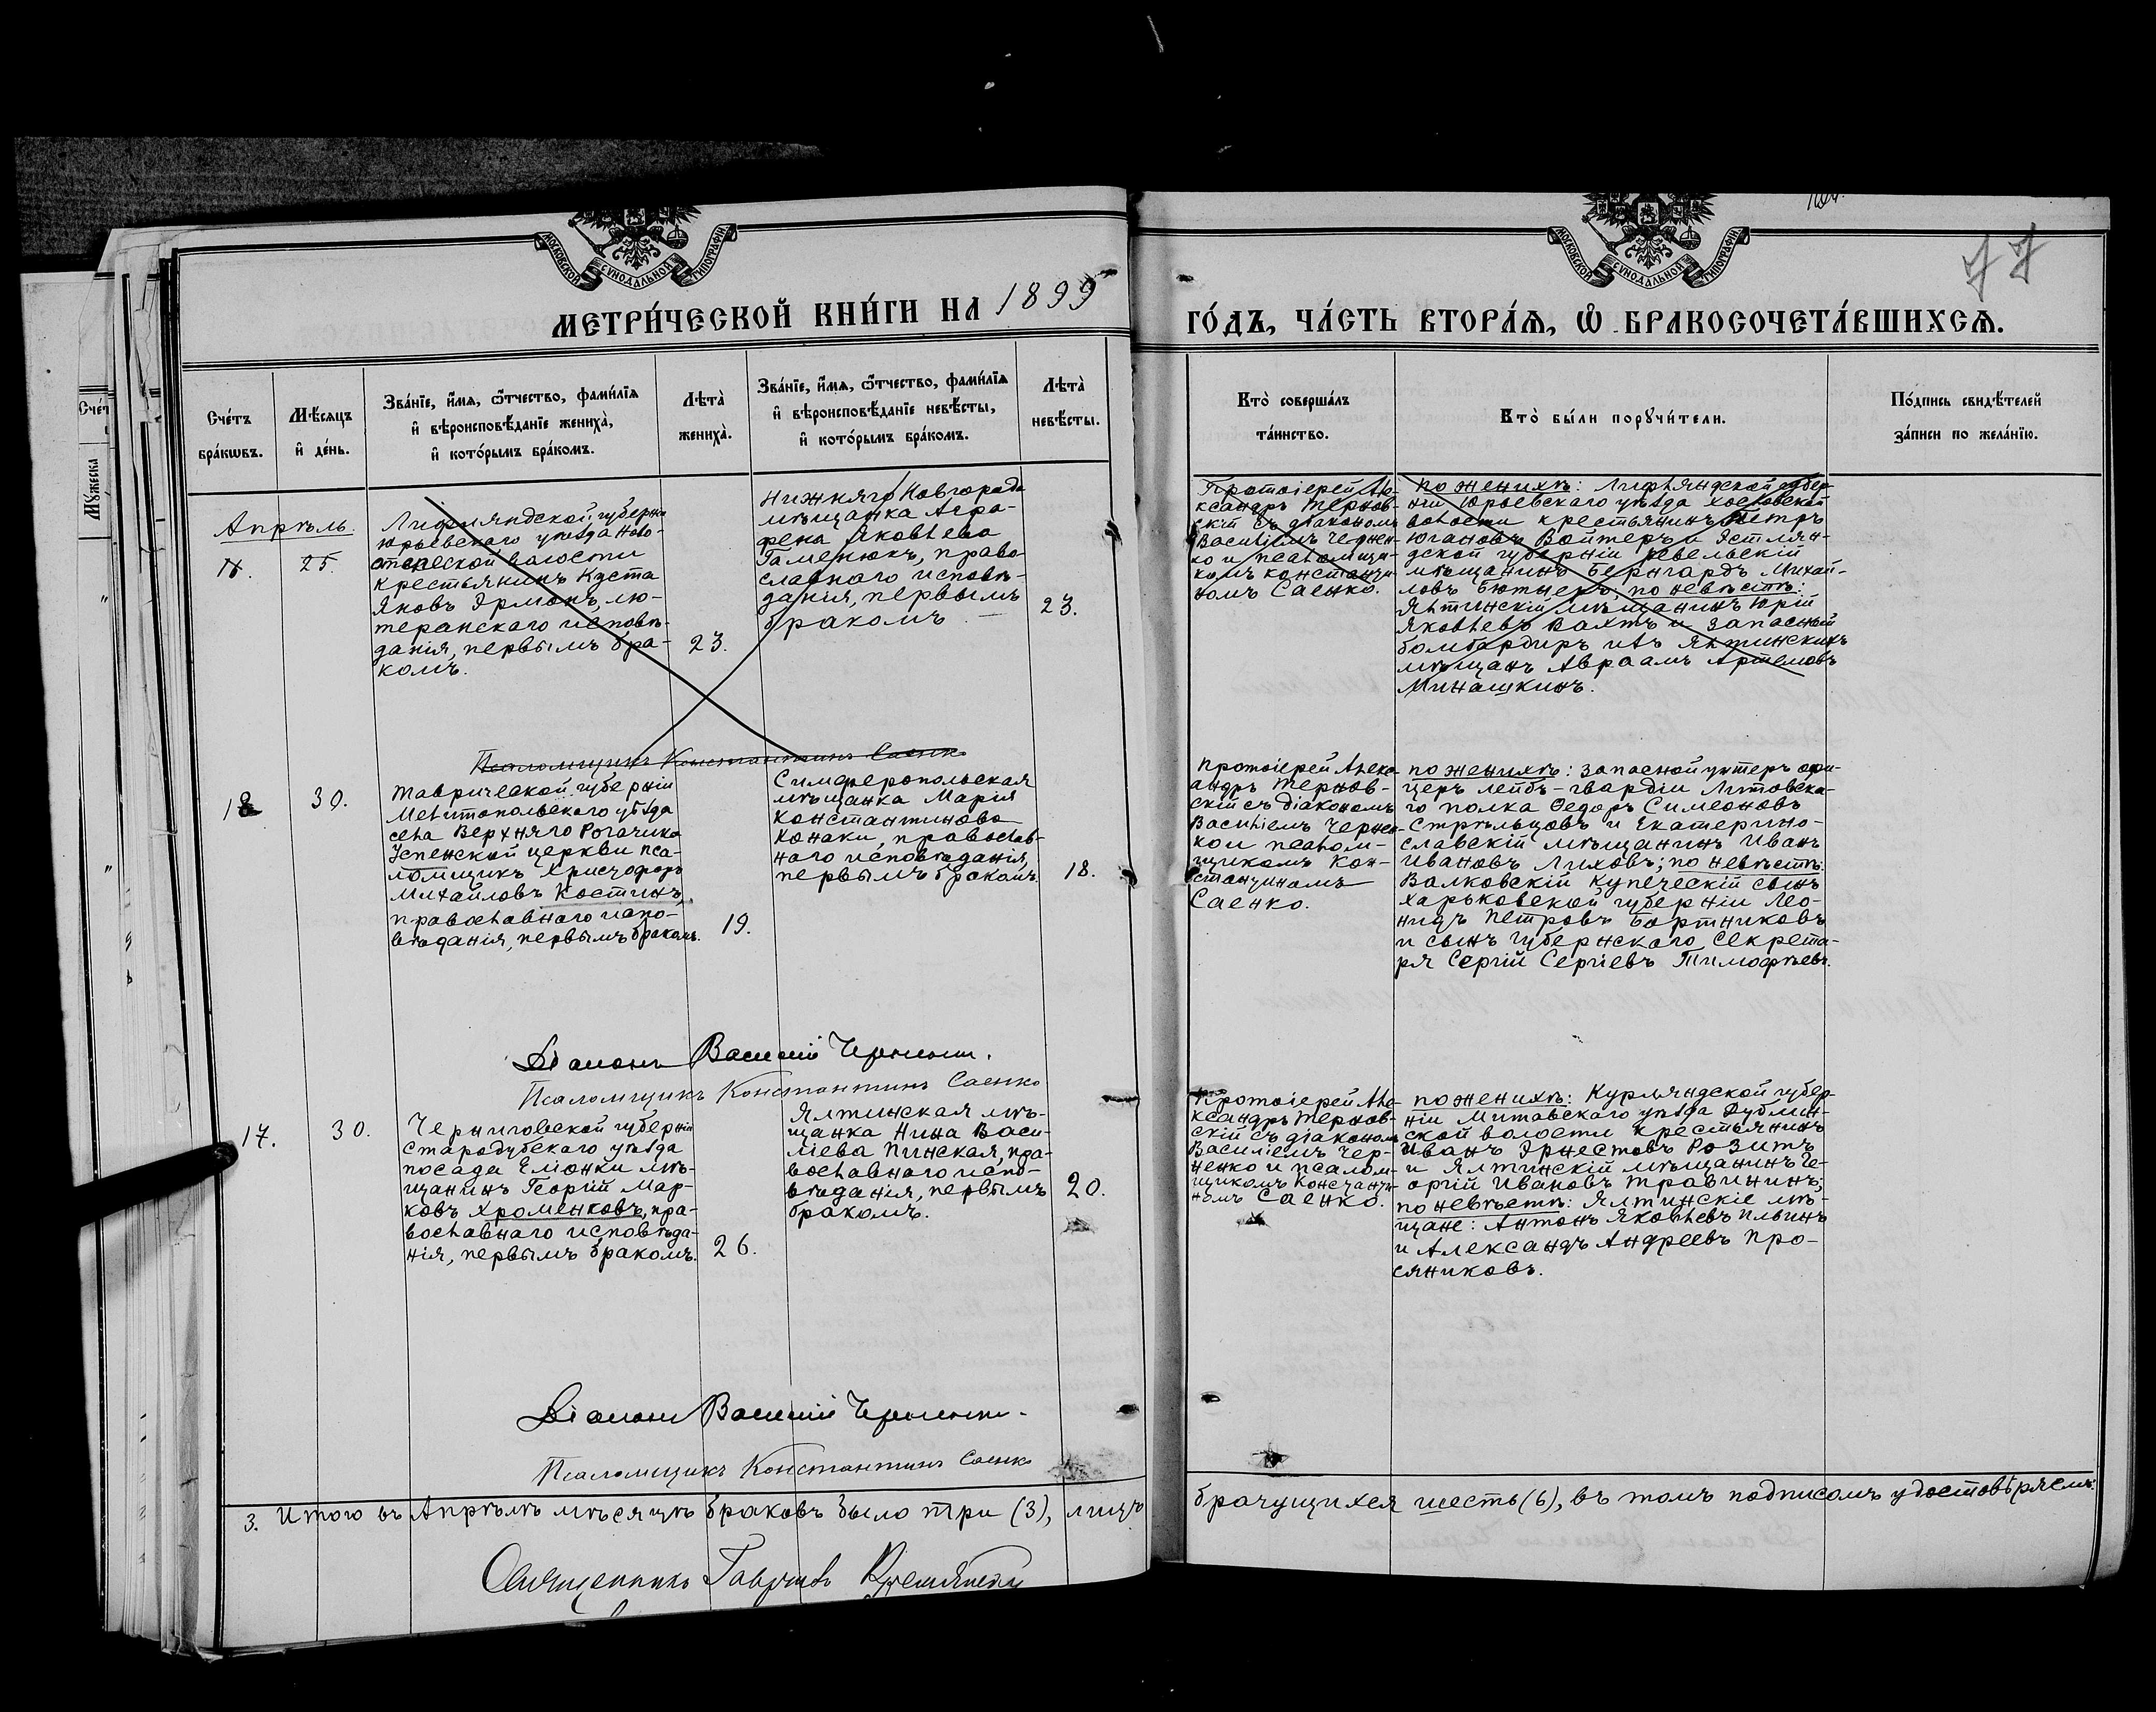 МОСКОВСКОЙ СѴНОДАЛЬНОЙ ТИПОГРАФІИ
МОСКОВСКОЙ СѴНОДАЛЬНОЙ ТИПОГРАФІИ
77
МЕТРИ́ЧЕСКОЙ КНИ́ГИ НА 1899
ГО́ДЪ, ЧА́СТЬ ВТОРА́Ѧ, Ѡ҆ БРАКОСОЧЕТА́ВШИХСѦ.
Сче́тъ
Мꙋ́жеска
Сче́тъ
бра́кѡвъ.
Мѣ́сѧцъ
и҆ де́нь.
Зва́нїе, и҆́мѧ, ѻ҆́тчество, фами́лїѧ
и҆ вѣроисповѣ́данїе жениха̀,
и҆ кото́рымъ бра́комъ.
Лѣта̀
жениха̀.
Зва́нїе, и҆́мѧ, ѻ҆́тчество, фами́лїѧ
и҆ вѣроисповѣ́данїе невѣ́сты,
и҆ кото́рымъ бра́комъ.
Лѣта̀
невѣ́сты.
Кто̀ соверша́лъ
та́инство.
Кто̀ бы́ли порꙋчи́тели.
По́дпись свидѣ́телей
за́писи по жела́нїю.
Апрѣль.
25.
Лифляндской губерніи
Юрьевскаго уѣзда Ново-
волости
крестьянинъ Куста
Яковъ Эрмонъ, лю-
теранскаго исповѣ-
данія, первымъ бра-
комъ.
23.
Нижняго Новгорода
мѣщанка Агра-
фена Яковлева
Гаменюкъ, право-
славнаго исповѣ-
данія, первымъ
бракомъ
23.
Протоіерей Але-
ксандръ Тернов-
скій съ діакономъ
Василіемъ Чернен-
ко и псаломщи-
комъ Константи-
номъ Саенко.
по женихѣ: Лифляндской губер-
ніи Юрьевскаго уѣзда
волости крестьянинъ Петръ
Югановъ Войтеръ и Эстлян-
дской губерніи Ревельскій
мѣщанинъ Бернгардъ Михай-
ловъ Бютнеръ, по невѣстѣ:
Ялтинскій мѣщанинъ Юрій
Яковлевъ Вахтъ и запасный
бомбардиръ изъ Ялтинскихъ
мѣщанъ Авраамъ Артемовъ
Минашкинъ.
Псаломщикъ Константинъ Саенко
30.
Таврической губерніи
Мелитопольскаго уѣзда
села Верхняго Рогачика
Успенской церкви пса-
ломщикъ Христофоръ
Михайловъ Костинъ,
православнаго испо-
вѣданія, первымъ бракомъ.
19.
Симферопольская
мѣщанка Марія
Константинова
Конаки, православ-
наго исповѣданія,
первымъ бракомъ.
18.
Протоіерей Алекс-
андръ Тернов-
скій съ діакономъ
Василіемъ Чернен-
ко и псалом-
щикомъ Кон-
стантиномъ
Саенко.
по женихѣ: запасной унтеръ офи-
церъ лейбъ-гвардіи Литовска-
го полка Ѳедоръ Симеоновъ
Стрѣльцовъ и Екатерино-
славскій мѣщанинъ Иванъ
Ивановъ Лиховъ; по невѣстѣ:
Валковскій купеческій сынъ
Харьковской губерніи Лео-
нидъ Петровъ Бортниковъ
и сынъ губернскаго секрета-
ря Сергій Сергіевъ Тимофѣевъ.
Діаконъ Василій Черненко.
Псаломщикъ Константинъ Саенко
17.
30.
Черниговской губерніи
Стародубскаго уѣзда
посада Еліонки мѣ-
щанинъ Георгій Мар-
ковъ Хроменковъ, пра-
вославнаго исповѣда-
нія, первымъ бракомъ.
26.
Ялтинская мѣ-
щанка Нина Васи-
ліева Пинская, пра-
вославнаго испо-
вѣданія, первымъ
бракомъ.
20.
Протоіерей Але-
ксандръ Тернов-
скій съ діакономъ
Василіемъ Чер-
ненко и псалом-
щикомъ Константи-
номъ Саенко.
по женихѣ: Курляндской губер-
ніи Митавскаго уѣзда Дублин-
ской волости крестьянинъ
Иванъ Эрнестовъ Розитъ
и Ялтинскій мѣщанинъ Ге-
оргій Ивановъ Травининъ;
по невѣстѣ: Ялтинскіе мѣ-
щане: Антонъ Яковлевъ Ильинъ
и Александъ Андреевъ Про-
сяниковъ.
Діаконъ Василій Черненко.
Псаломщикъ Константинъ Саенко
3. Итого въ Апрѣлѣ мѣсяцѣ браковъ было три (3), лицъ
брачущихся шесть (6), въ томъ подписомъ удостовѣряемъ:
Священникъ